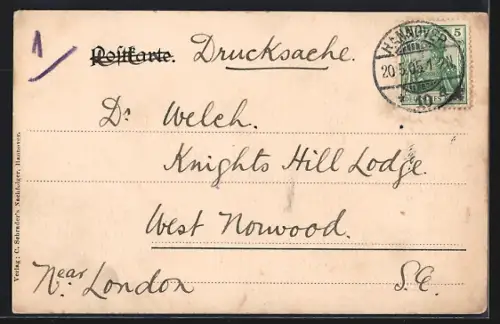 1
Postkarte. Drucksache.
HANNOVER
5
20.5.05.
Dr Welch.
Knights Hill Lodge.
West Norwood.
Near London S.E.
Verlag: C. Schrader's Nachfolger, Hannover.